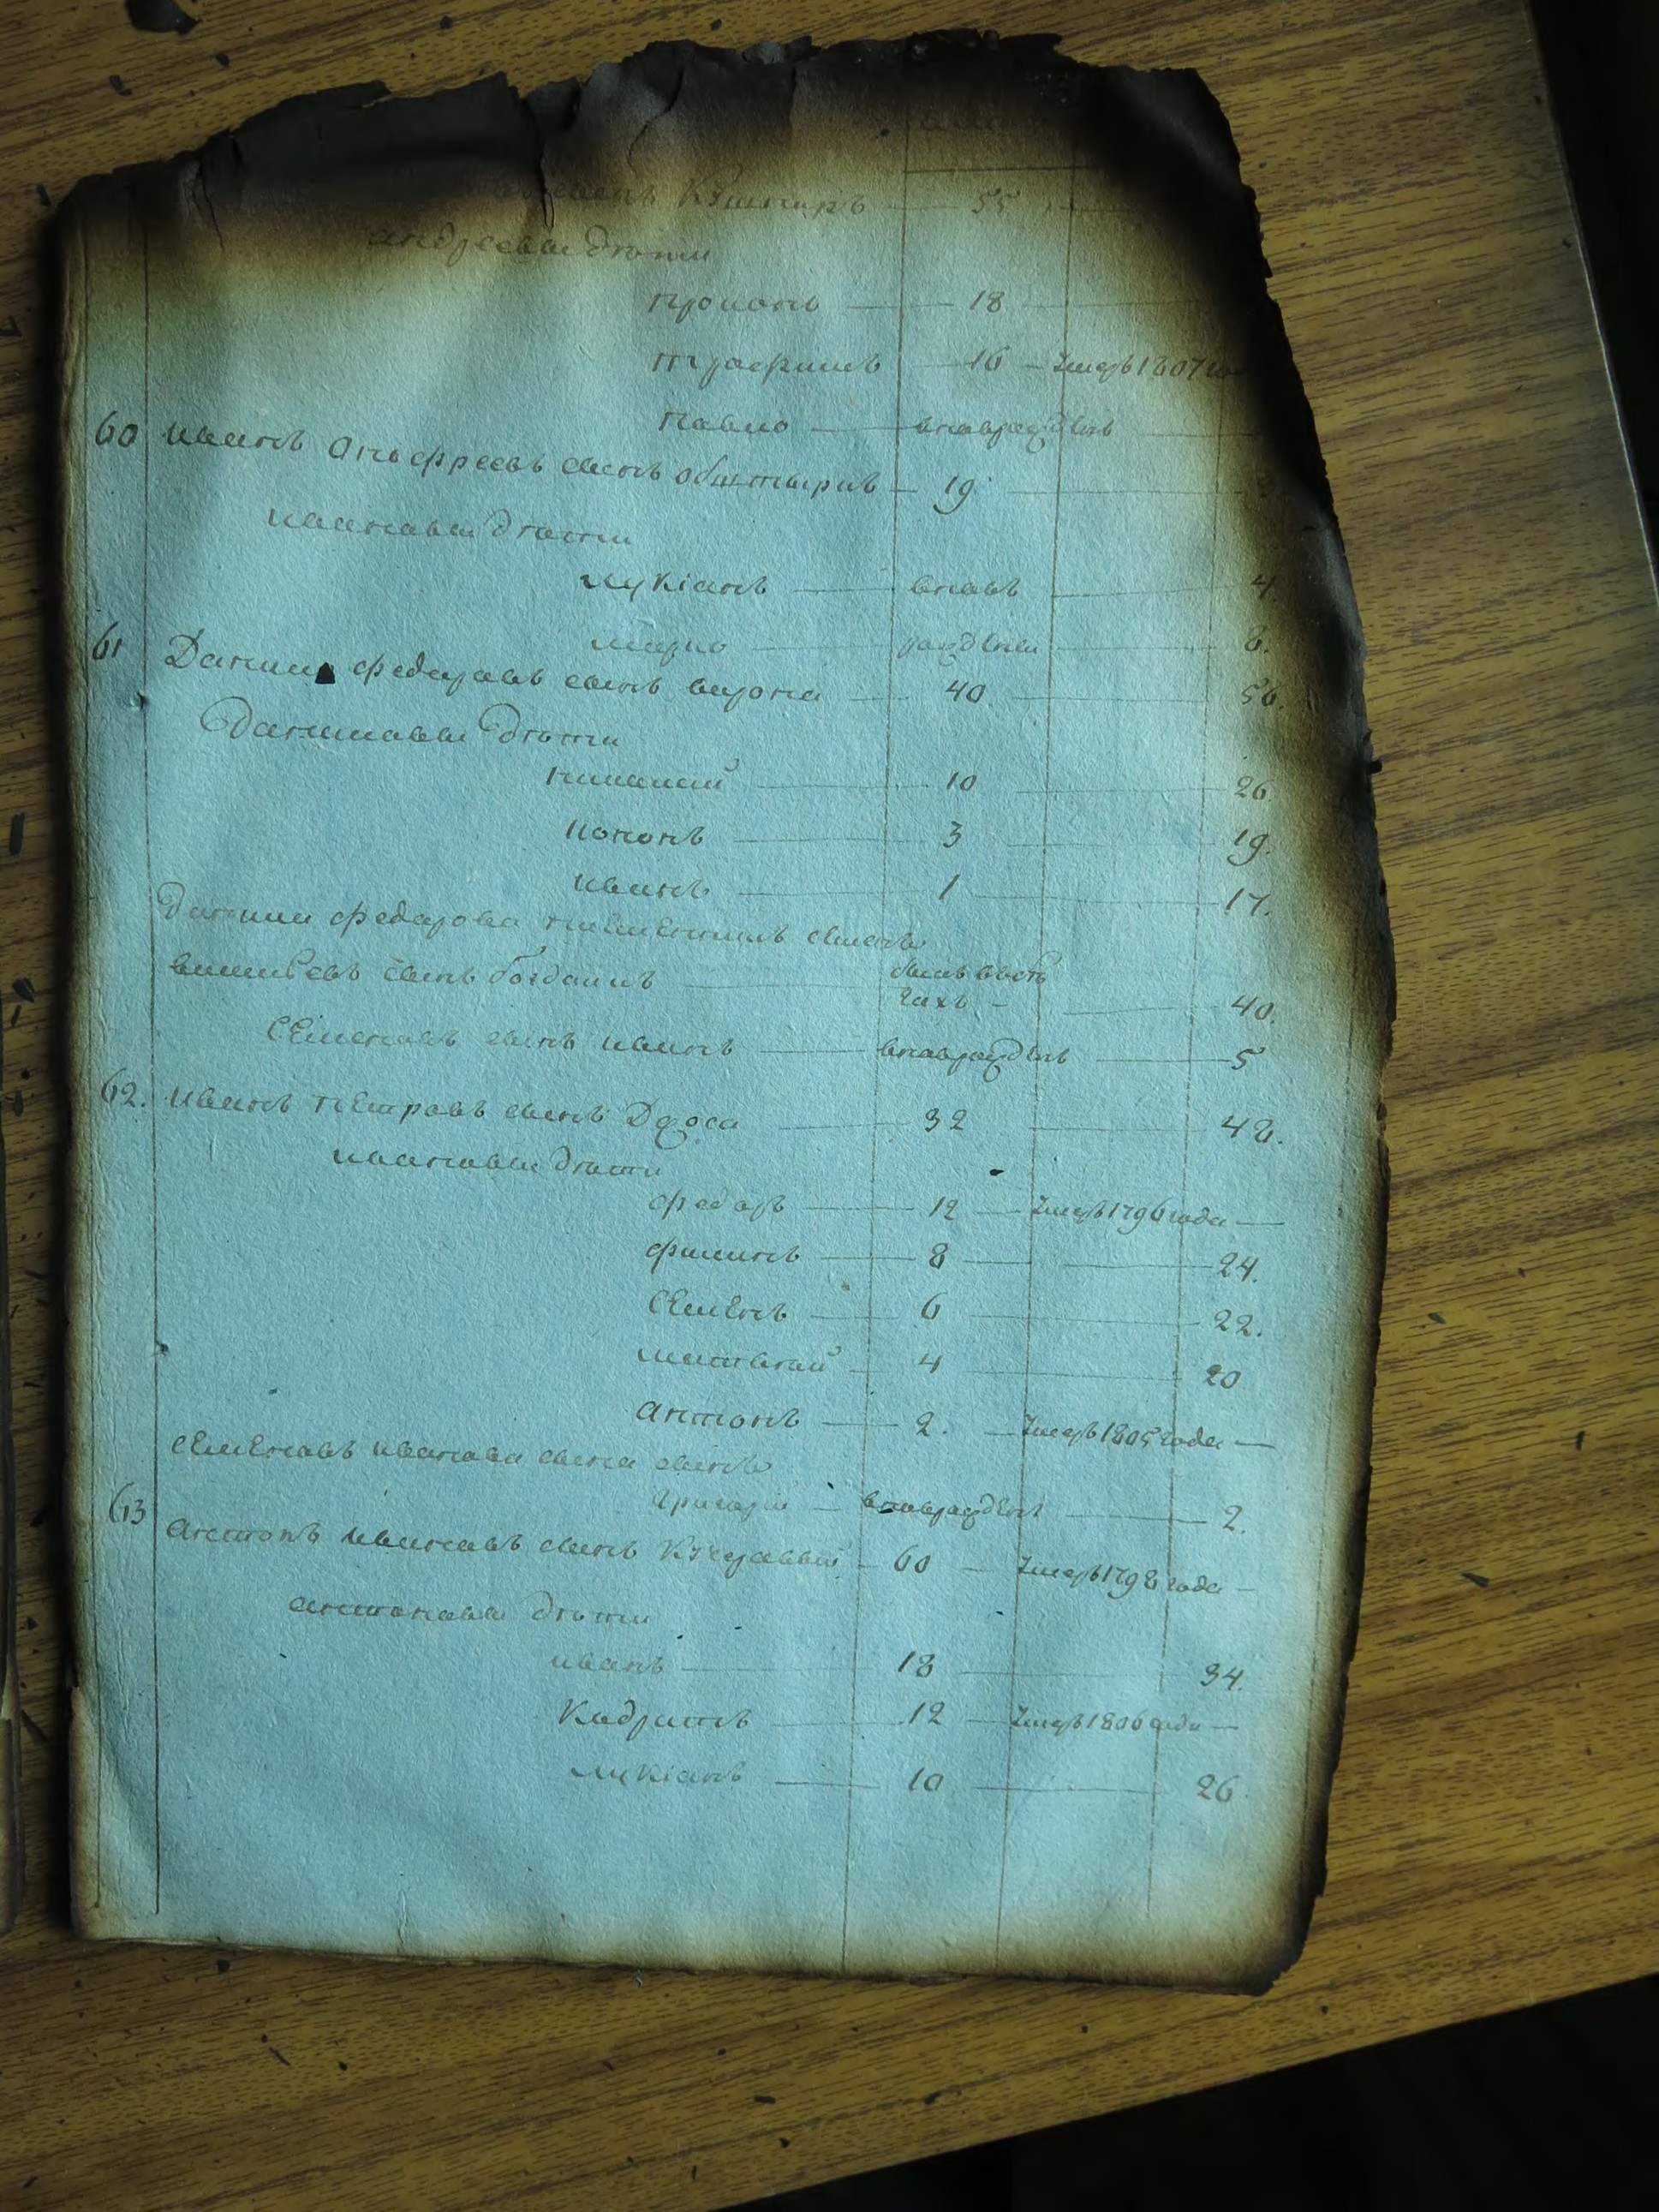 55
андреевы дѣти
Прокопъ 18
Трофимъ 16 Умеръ 1807
Павло вновьрожденъ
60 Иванъ Онофреевъ сынъ 19
Ивановы дѣти
Лукіанъ вновь 4
Марко рожденъ 8.
61 Данило Федоровъ сынъ Ворона 40 56.
Даниловы дѣти
Николай 10 26
Кононъ 3 19.
Иванъ 1 17.
Данила Федорова племенникъ Семенъ
сынъ Богдашъ былъ въ бѣ
гахъ 40.
Семеновъ сынъ Иванъ вновьрожденъ 5
62. Иванъ Петровъ сынъ 32 48.
Ивановы дѣти
Федоръ 12 Умеръ 1796 года
Филипъ 8 24.
Семенъ 6 22.
Матвѣй 4 20
Антонъ 2. Умеръ 1805 года
Семеновъ Иванова сына сынъ
Григорій вновьрожденъ 2.
63 Антонъ Ивановъ сынъ 60 Умеръ 1798 года
Антоновы дѣти
Иванъ 18 34.
Кодратъ 12 Умеръ 1806 года
Лукіанъ 10 26.